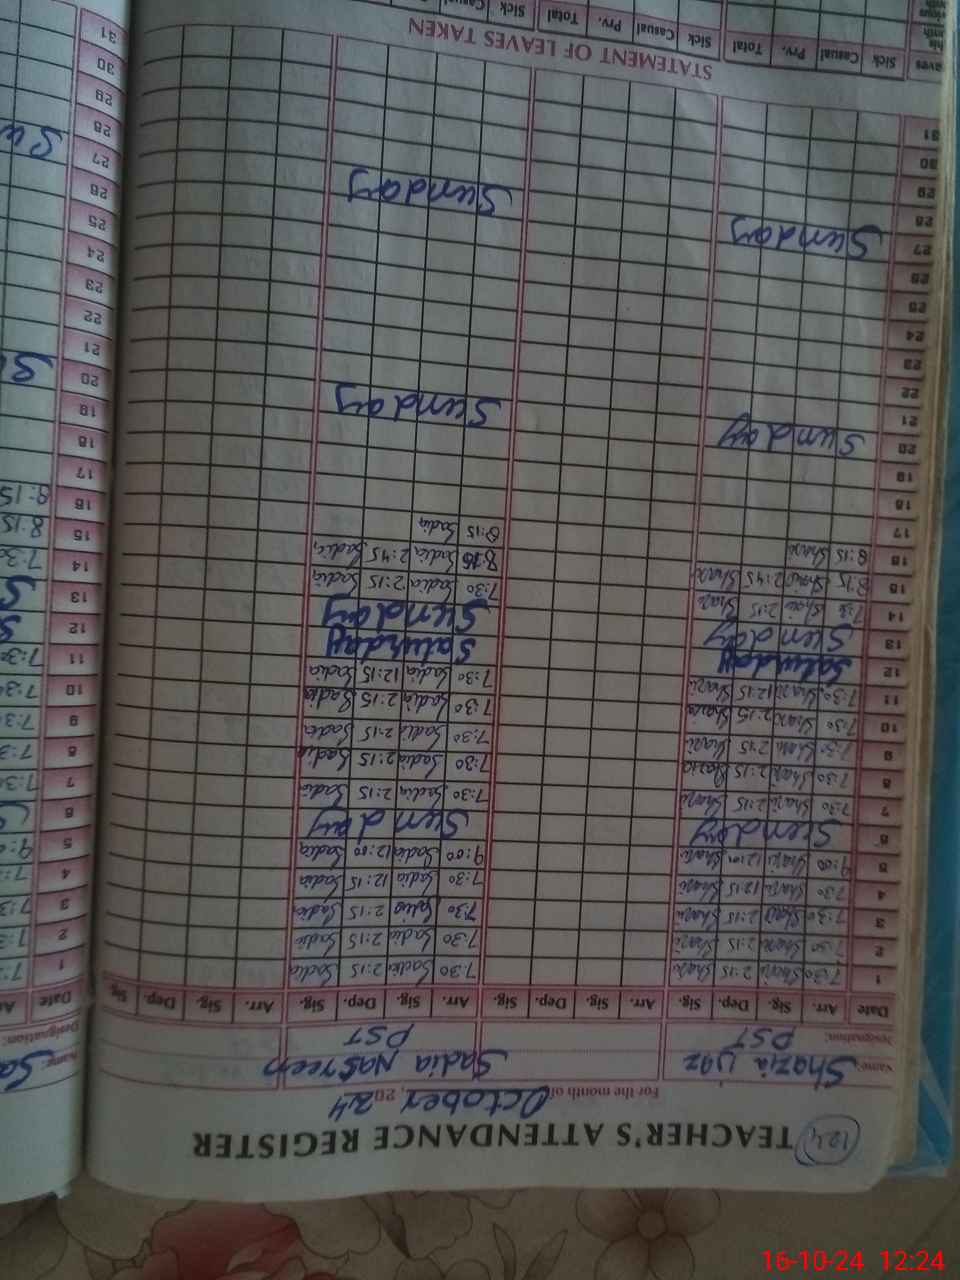 124
TEACHER'S ATTENDANCE REGISTER
For the month of October, 2024
Name: Shazia Naz Sadia Nasreen
Designation: PST PST
Date Arr. Sig. Dep. Sig. Arr. Sig. Dep. Sig. Arr. Sig. Dep. Sig. Arr. Sig. Dep. Sig.
1 7:30 Shazi 2:15 Shazi 7:30 Sadia 2:15 Sadia
2 7:30 Shazi 2:15 Shazi 7:30 Sadia 2:15 Sadia
3 7:30 Shazi 2:15 Shazi 7:30 Sadia 2:15 Sadia
4 7:30 Shazi 12:15 Shazi 7:30 Sadia 12:15 Sadia
5 9:00 Shazi 12:00 Shazi 9:00 Sadia 12:00 Sadia
6 Sunday Sunday
7 7:30 Shazi 2:15 Shazi 7:30 Sadia 2:15 Sadia
8 7:30 Shazi 2:15 7:30 Sadia 2:15 Sadia
9 7:30 Shazi 2:15 Shazi 7:30 Sadia 2:15 Sadia
10 7:30 Shazi 2:15 Shazi 7:30 Sadia 2:15 Sadia
11 7:30 Shazi 12:15 Shazi 7:30 Sadia 12:15 Sadia
12 Saturday Saturday
13 Sunday Sunday
14 7:30 Shazi 2:15 Shazi 7:30 Sadia 2:15 Sadia
15 8:15 Shazi 2:45 Shazi 8:15 Sadia 2:45 Sadia
16 8:15 Shazi 8:15 Sadia
17
18
19
20 Sunday Sunday
21
22
23
24
25
26
27 Sunday Sunday
28
29
30
31
STATEMENT OF LEAVES TAKEN
Sick Casual Prv. Total Sick Casual Prv. Total Sick
Name:
Designation:
Date
1
2
3
4
5
6
7
8
9
10
11
12
13
14
15 8:15
16 8:15
17
18
19
20
21
22
23
24
25
26
27
28
29
30
31
16-10-24 12:24